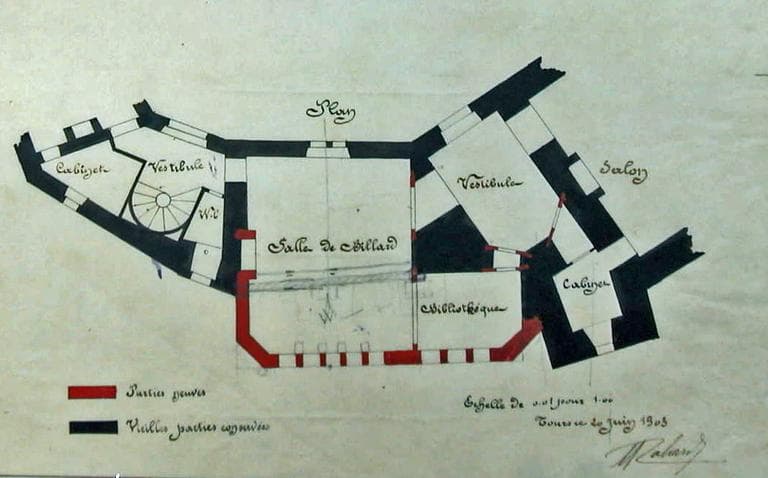 Plan
Cabinet
Vestibule
W.C
Salle de Billard
Bibliothèque
Vestibule
Salon
Cabinet
Parties neuves
Vieilles parties conservées
Echelle de 0.01 pour 1.00
Tours le 20 Juin 1903